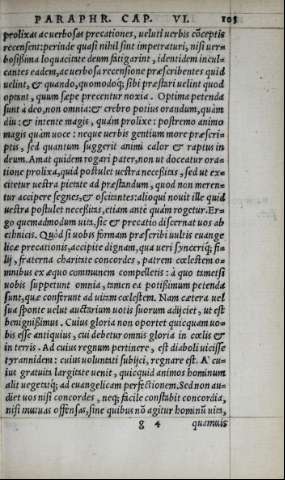 PARAPHR. CAP. VI. 103
prolixas ac uerbosas precationes, ueluti uerbis cōceptis
recensent: perinde quasi nihil sint impetraturi, nisi uer=
bosissima loquacitate deum fatigarint, identidem incul=
cantes eadem, ac uerbosa recensione præscribentes quid
uelint, & quando, quomodoq; sibi præstari uelint quod
optant, quum sæpe precentur noxia. Optima petenda
sunt à deo, non omnia: & crebro potius orandum, quàm
diu: & intente magis, quàm prolixe: postremo animo
magis quàm uoce: neque uerbis gentium more præscri=
ptis, sed quantum suggerit animi calor & raptus in
deum. Amat quidem rogari pater, non ut doceatur ora=
tione prolixa, quid postulet uestra necessitas, sed ut ex=
citetur uestra pietate ad præstandum, quod non meren=
tur accipere segnes, & oscitantes: alioqui nouit ille quid
uestra postulet necessitas, etiam ante quàm rogetur. Er=
go quemadmodum uita, sic & precatio discernat uos ab
ethnicis. Quòd si uobis formam præscribi uultis euange
licæ precationis, accipite dignam, qua ueri synceriq; fi=
lij, fraterna charitate concordes, patrem cœlestem o=
mnibus ex æquo communem compelletis: à quo tametsi
uobis suppetunt omnia, tamen ea potissimum petenda
sunt, quæ conferunt ad uitam cœlestem. Nam cætera uel
sua sponte uelut auctarium uotis suorum adijciet, ut est
benignissimus. Cuius gloria non oportet quicquam uo=
bis esse antiquius, cui debetur omnis gloria in cœlis &
in terris. Ad cuius regnum pertinere, est diaboli uicisse
tyrannidem: cuius uoluntati subijci, regnare est. A' cu=
ius gratuita largitate uenit, quicquid animos hominum
alit uegetatq; ad euangelicam perfectionem. Sed non au=
diet uos nisi concordes, neq; facile constabit concordia,
nisi mutuas offensas, sine quibus nō agitur hominū uita,
g 4 quamuis